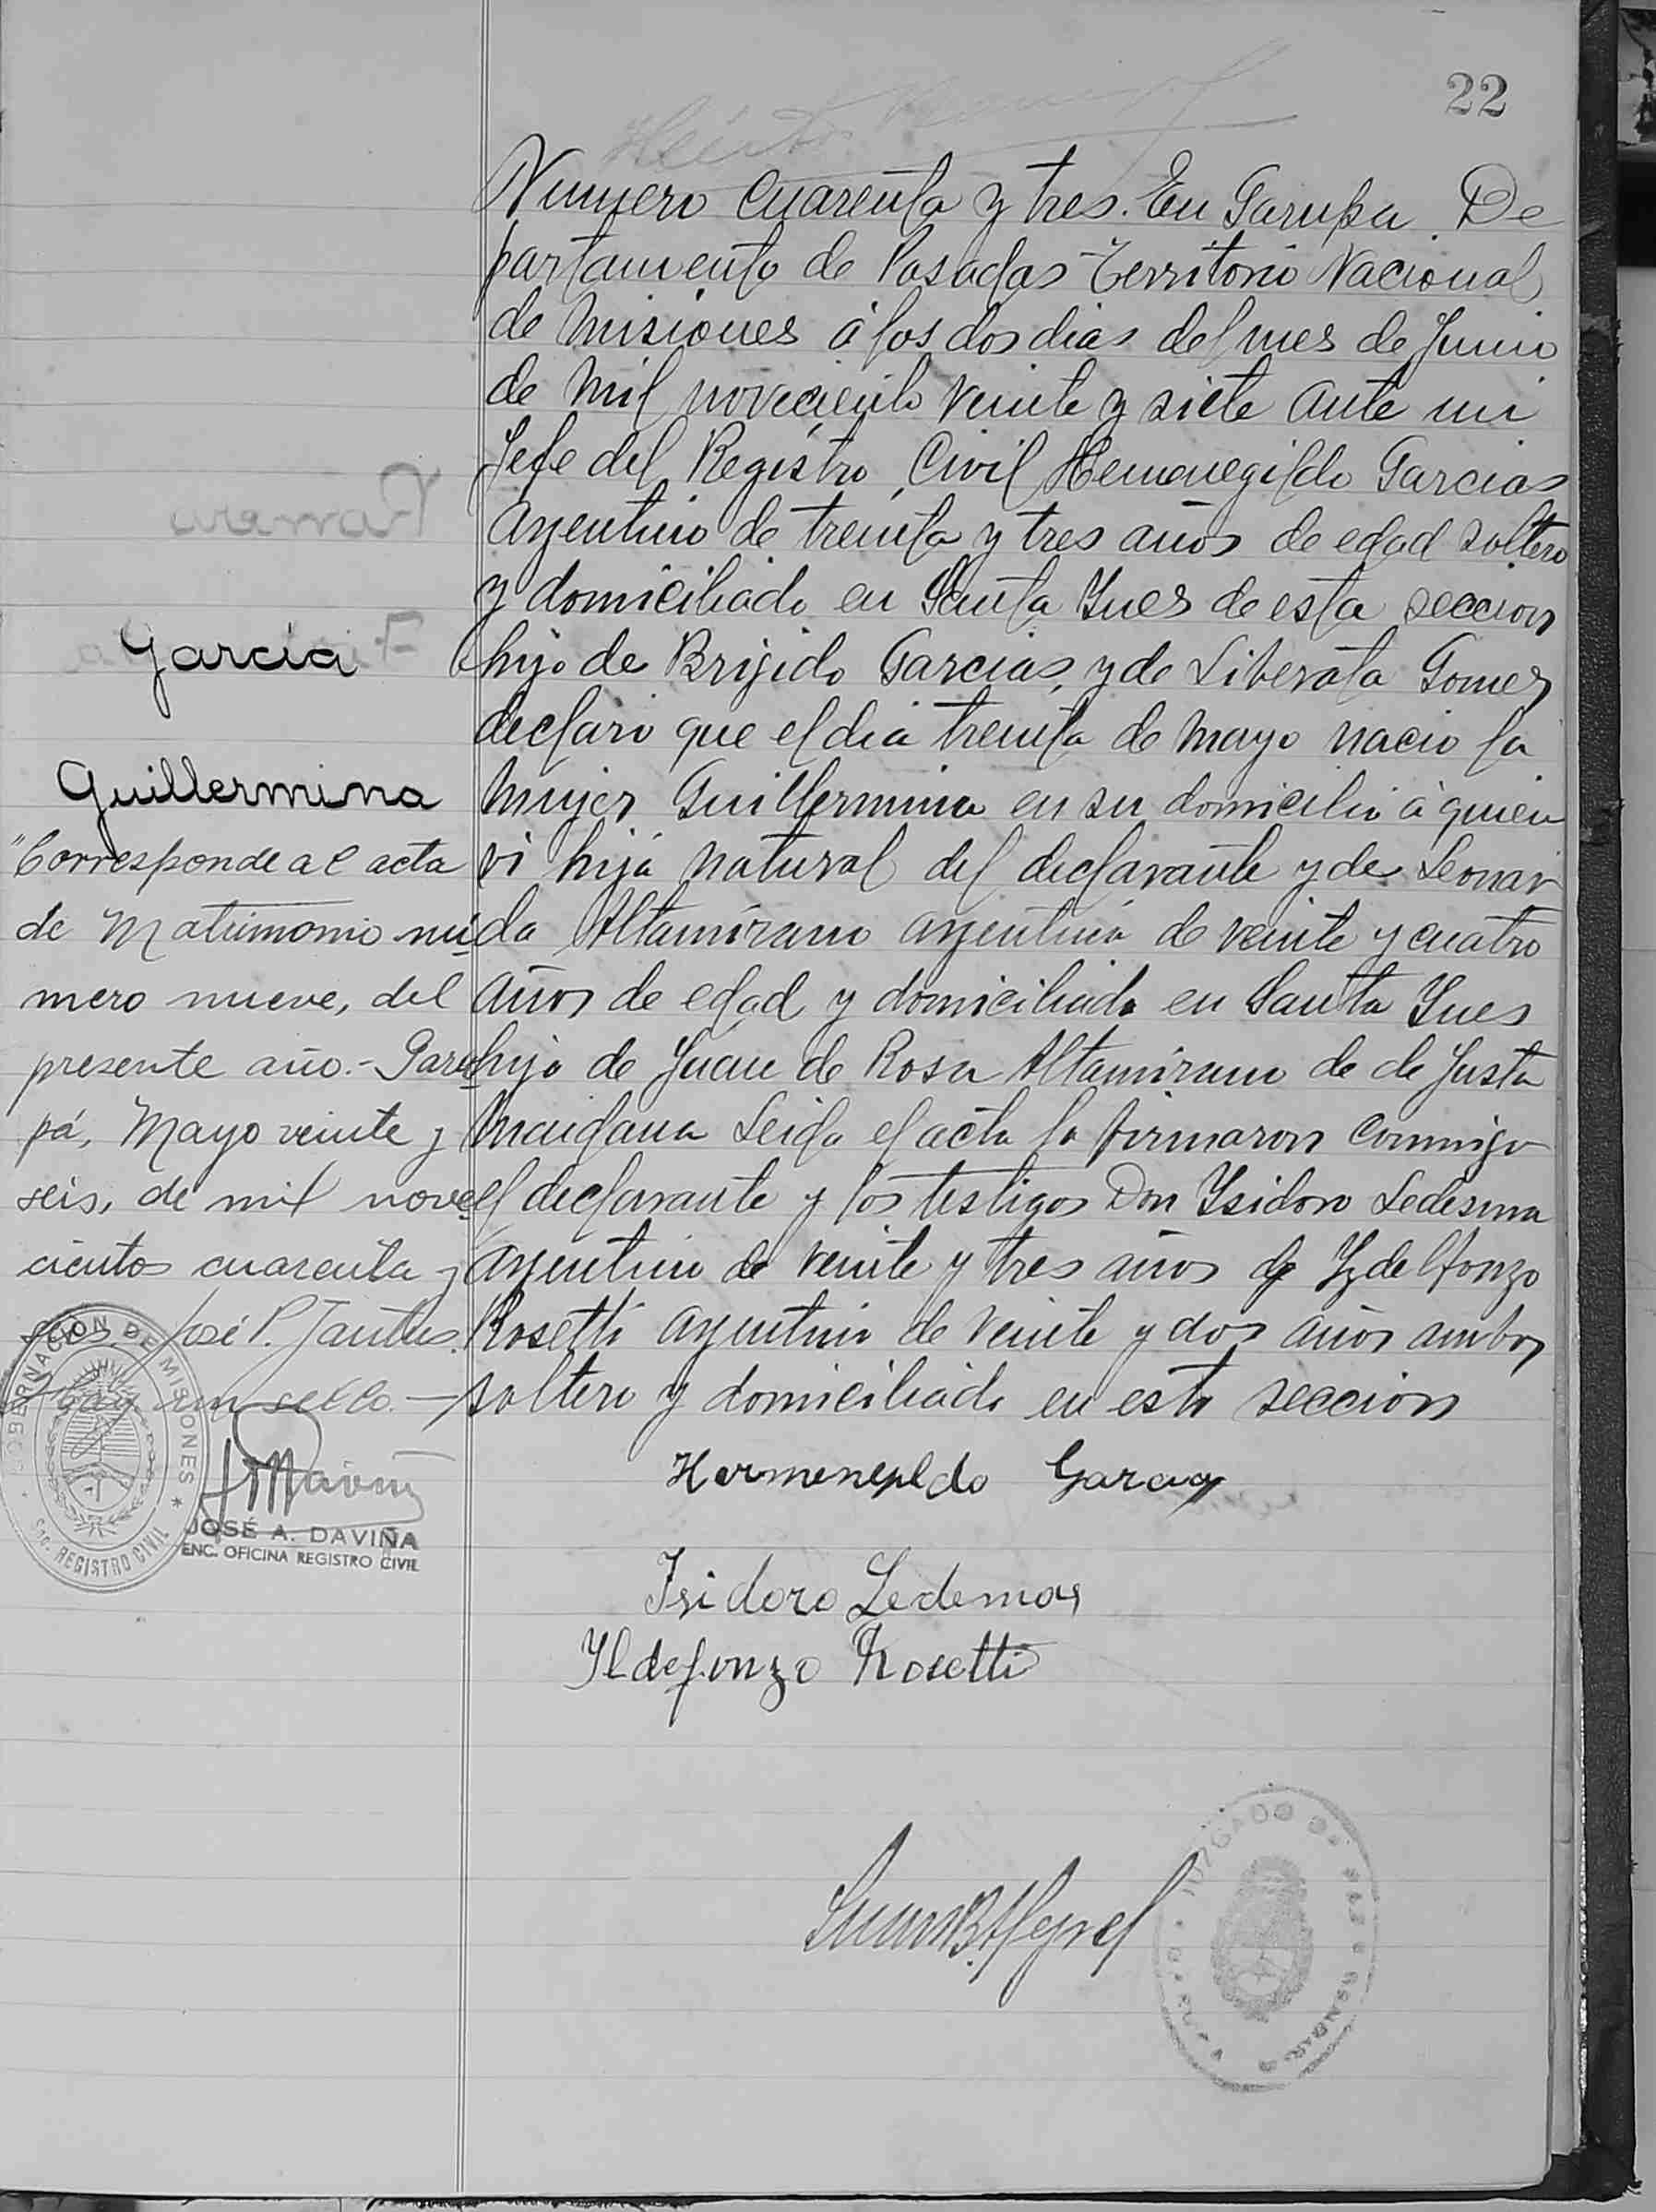 22
Numero cuarenta y tres. En Garupa. De
partamento de Posadas Territorio Nacional
de Misiones á los dos dias del mes de Junio
de mil noveciento veinte y siete ante mi
Jefe del Registro Civil Hemenegildo Garcias
argentino de treinta y tres años de edad soltero
y domiciliado en Santa Ynes de esta seccion
hijo de Brijido Garcias, y de Liberata Gomez
declaro que el dia treinta de mayo nacio la
mujer Guillermina en su domicilio á quien
vi hija natural del declarante y de Leonar
da Altamirano argentina de veinte y cuatro
años de edad y domiciliado en Santa Ynes
hija de Juan de Rosa Altamirano de de Justa
Maidana Leida el acta la firmaron conmigo
el declarante y los testigos Don Ysidoro Ledesma
argentino de veinte y tres años Yzdelfonzo
Rosetti argentino de veinte y dos años ambos
soltero y domiciliado en esta seccion
García
Guillermina
"Corresponde al acta
de Matrimonio nú
mero nueve, del
presente año.- Garu
pá, Mayo veinte y
seis, de mil nove
cientos cuarenta y
José P.
Hay un sello.—
GOBERNACION DE MISIONES * Sec. REGISTRO CIVIL
JOSÉ A. DAVIÑA
ENC. OFICINA REGISTRO CIVIL
Isidoro Ledemas
Yldefonzo Rosetti
JUZGADO DE PAZ